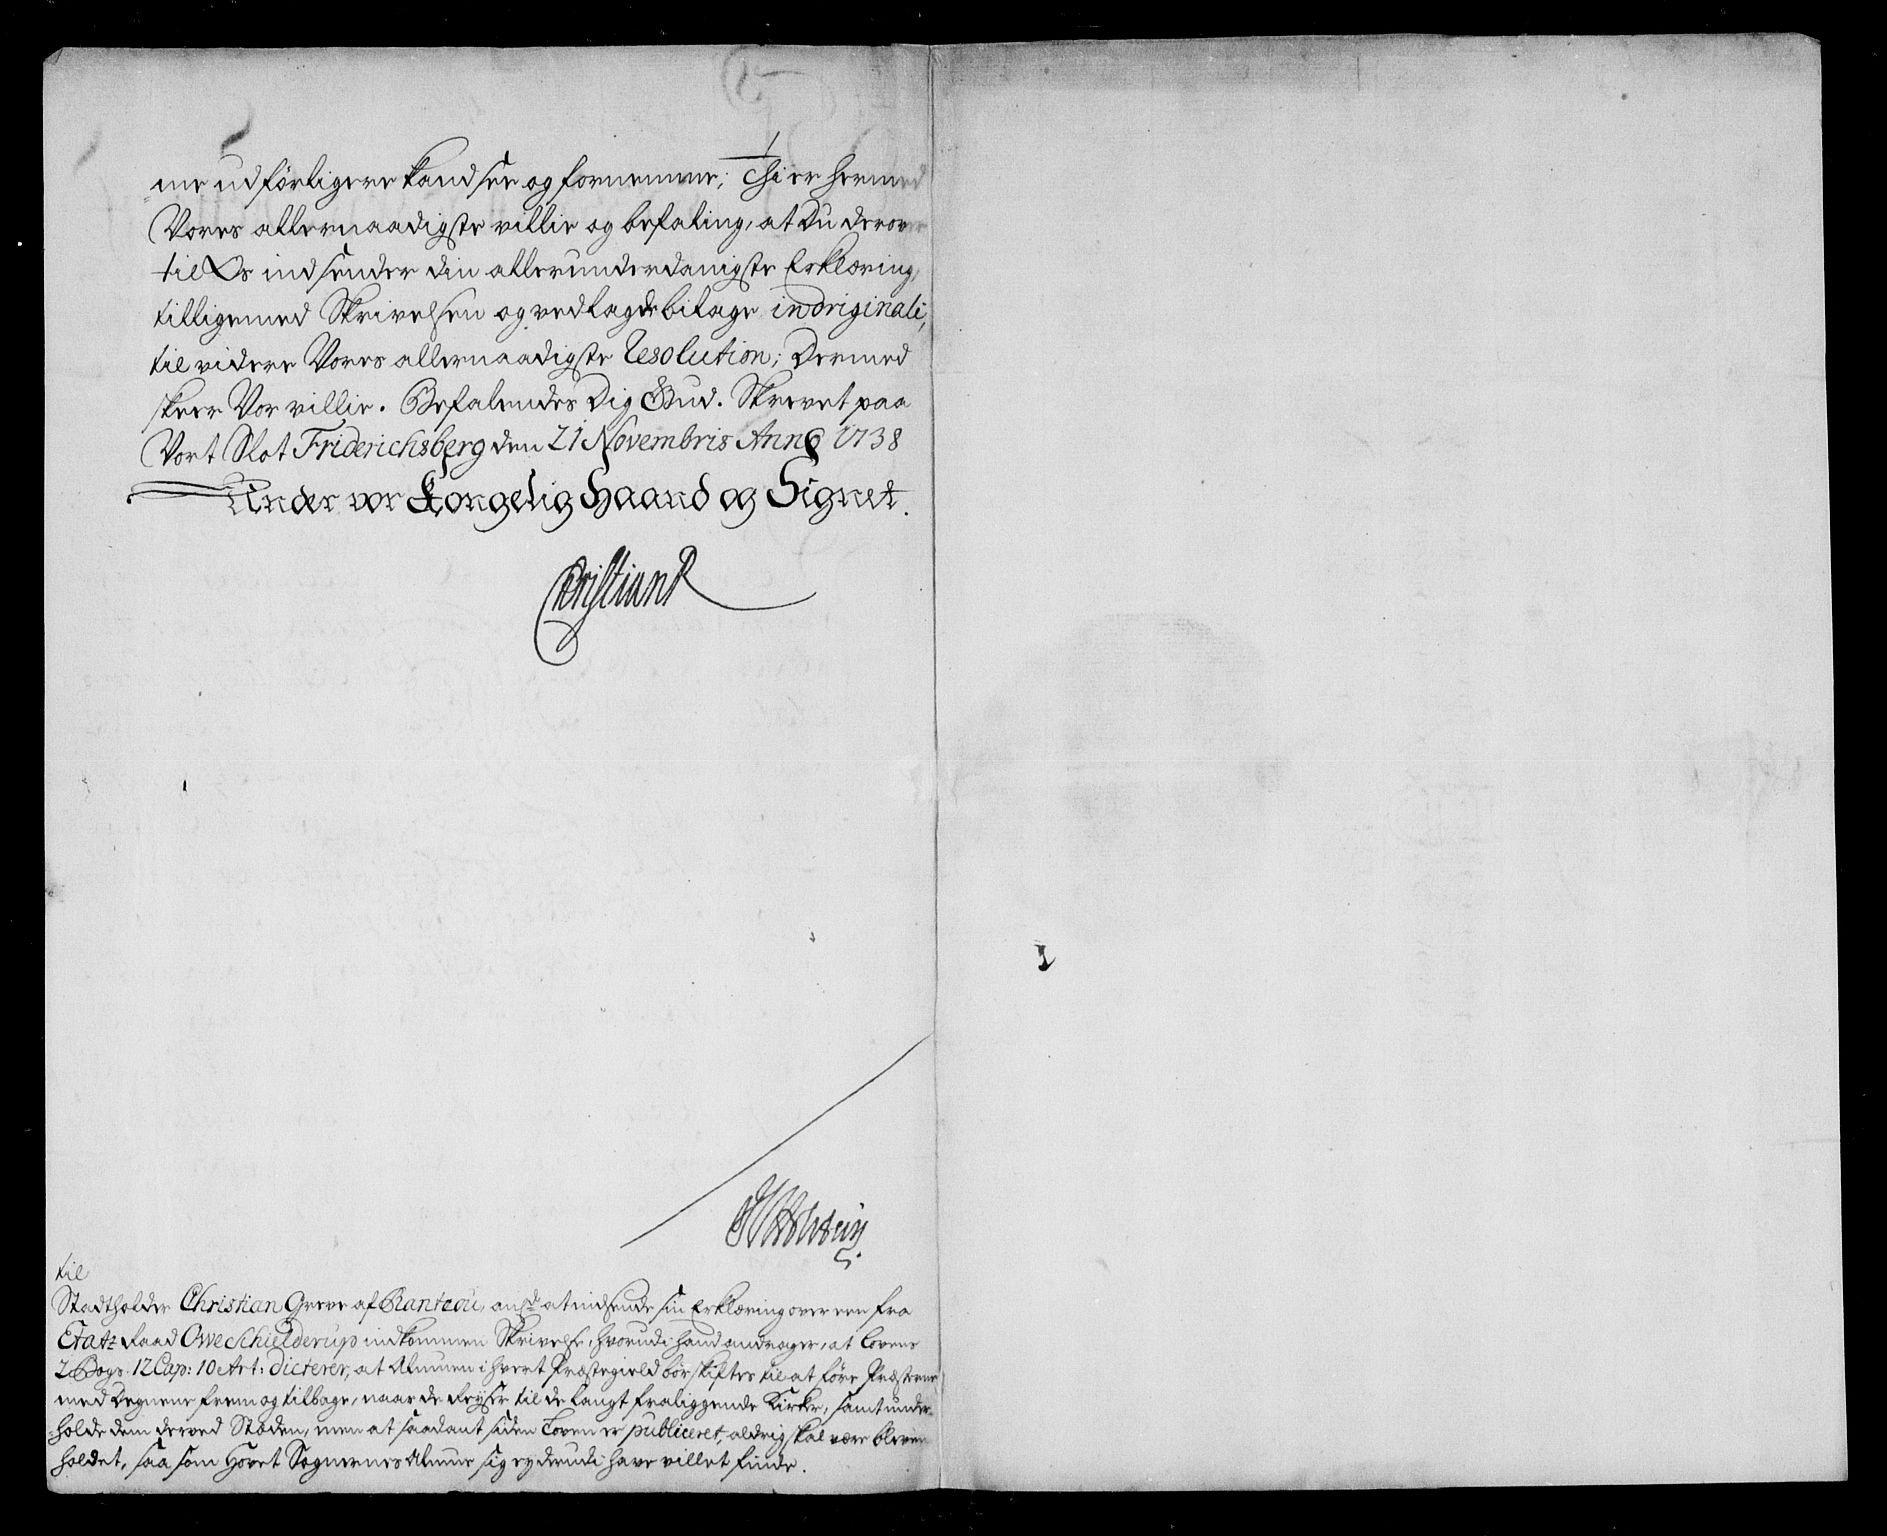 me udførligere kand see og fornemme; Thi er hermed
Vores allernaadigste villie og befaling, at Du derover
til Os indsender din allerunderdanigste Erklæring,
tilligemed Skrivelsen og vedlagde bilage in originali,
til videre Vores allernaadigste Resolution; Dermed
skeer Vor villie. Befalendes Dig Gud. Skrevet paa
Vort Slot Friderichsberg den 21 Novembris Anno 1738
Under vor Kongelig Haand og Signet.
Christian R
til
Stadtholder Christian Greve af Rantzou, at indsende sin Erklæring over een fra
Etatz Raad Owe Schielderup indkommen Skrivelse, hvorudi hand andrager, at Lovens
2 Bogs 12 Cap: 10 Art: dicterer, at Almuen i hvert Præstegield bør skiftes til at føre Præsterne
med Degnene frem og tilbage, naar de Reyser til de langt fraliggende Kirker, samt under-
holde dem derved Stæden, men at saadant siden Loven er publiceret, aldrig skal være bleven
holdet, saa som Hovet Sognernes Almue sig ey derudi have villet finde.